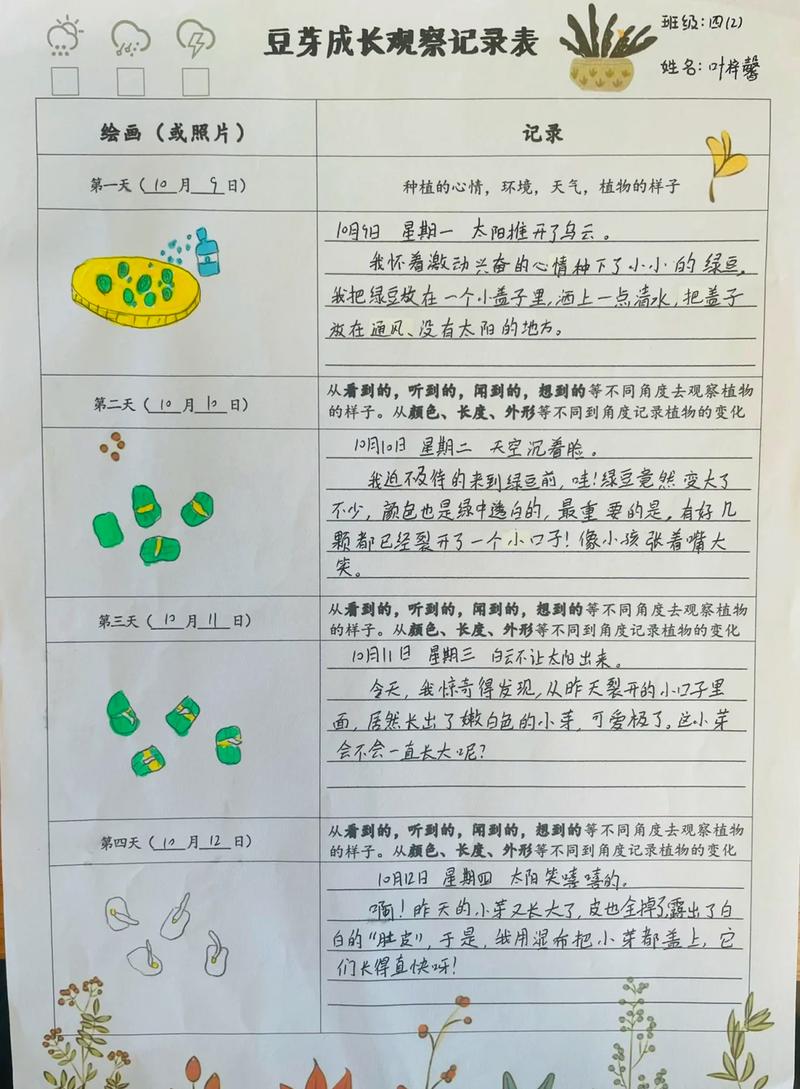 豆芽成长观察记录表
班级:四(2)
姓名:叶梓馨
绘画（或照片）
记录
第一天（10月9日）
种植的心情，环境，天气，植物的样子
10月9日 星期一 太阳推开了乌云。
我怀着激动兴奋的心情种下了小小的绿豆,
我把绿豆放在一个小盖子里,洒上一点清水,把盖子
放在通风、没有太阳的地方。
第二天（10月10日）
从看到的，听到的，闻到的，想到的等不同角度去观察植物
的样子。从颜色、长度、外形等不同到角度记录植物的变化
10月10日 星期二 天空沉着脸。
我迫不及待的来到绿豆前,哇!绿豆竟然变大了
不少,颜色也是绿中透白的,最重要的是,有好几
颗都已经裂开了一个小口子!像小孩张着嘴大
笑。
第三天（10月11日）
从看到的，听到的，闻到的，想到的等不同角度去观察植物
的样子。从颜色、长度、外形等不同到角度记录植物的变化
10月11日 星期三 白云不让太阳出来。
今天,我惊奇得发现,从昨天裂开的小口子里
面,居然长出了嫩白色的小芽,可爱极了。这小芽
会不会一直长大呢?
第四天（10月12日）
从看到的，听到的，闻到的，想到的等不同角度去观察植物
的样子。从颜色、长度、外形等不同到角度记录植物的变化
10月12日 星期四 太阳笑嘻嘻的。
啊!昨天的小芽又长大了,皮也全掉了,露出了白
白的“肚皮”,于是,我用湿布把小芽都盖上,它
们长得真快呀!